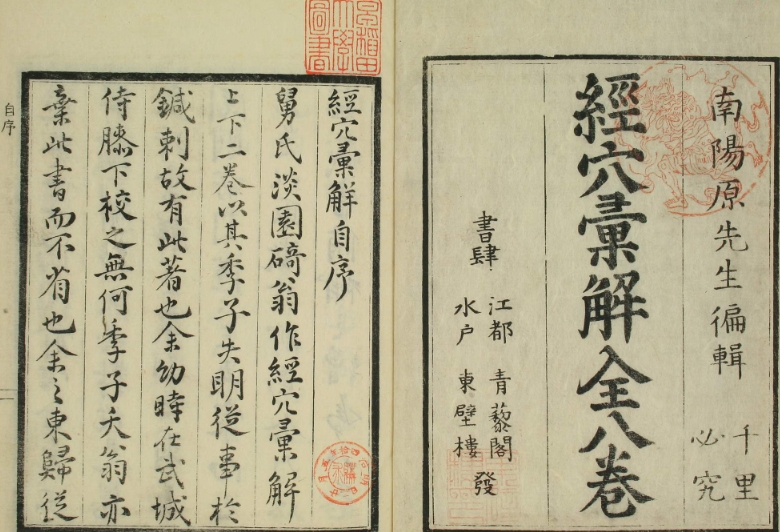 南陽原先生編輯
千里必究
經穴彙解全八卷
書肆
江都 青藜閣
水戸 東壁樓
發
經穴彙解自序
舅氏淡園碕翁作經穴彙解
上下二卷以其季子失明從事於
鍼刺故有此著也余幼時在武城
侍膝下校之無何季子夭翁亦
棄此書而不省也余之東歸從
自序